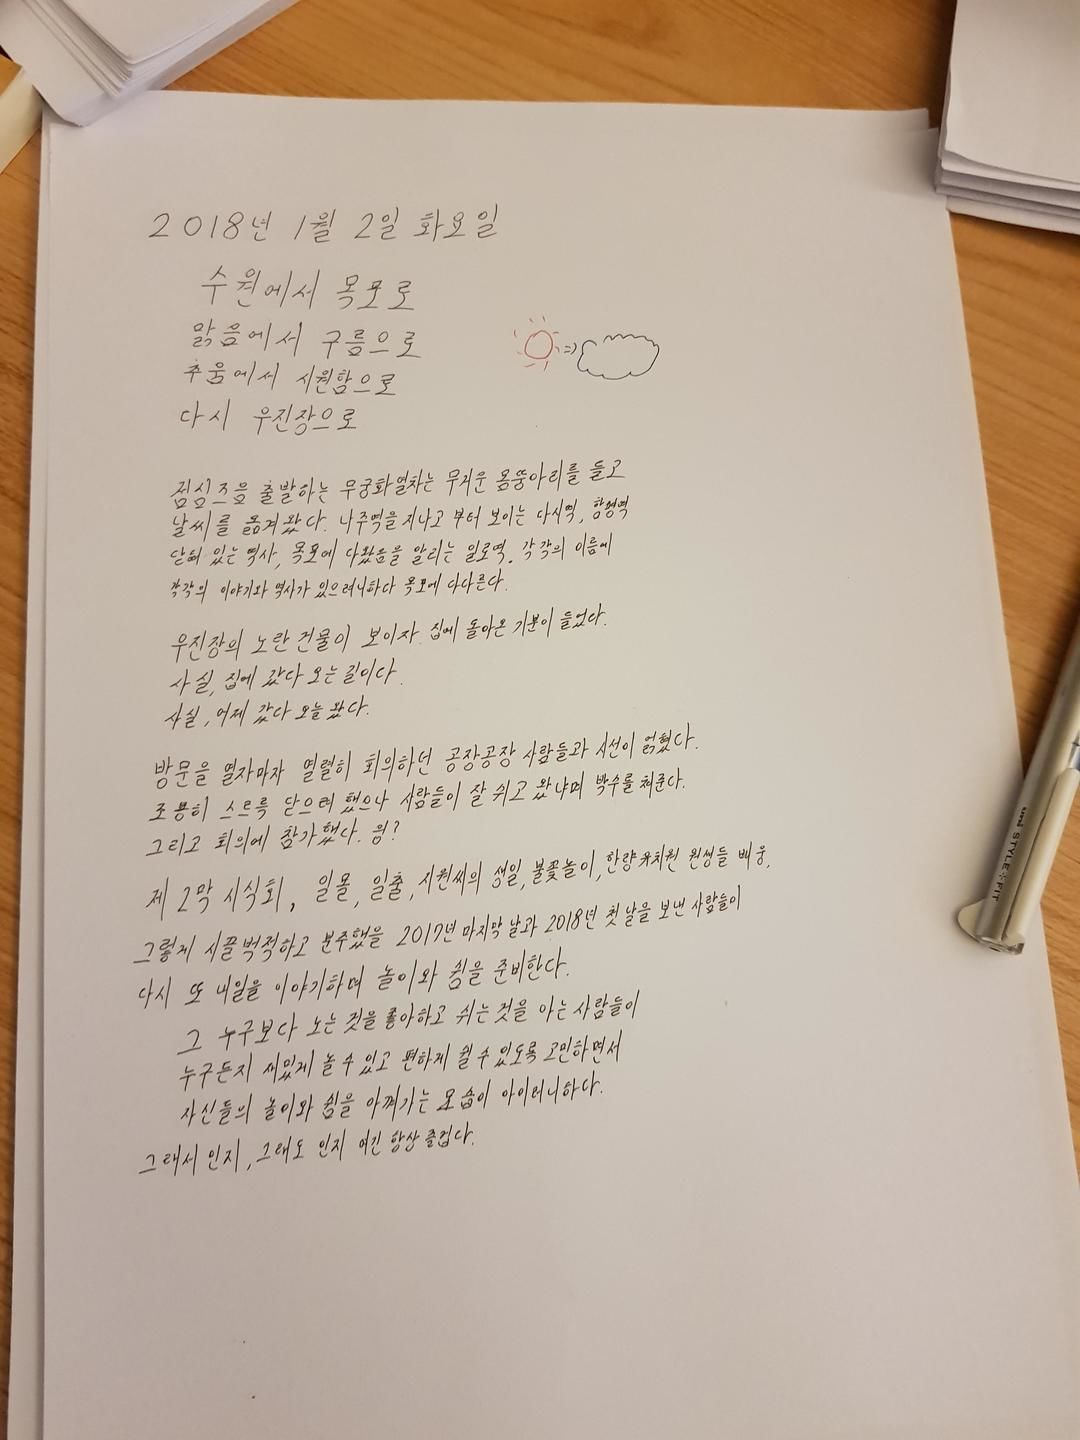 2018년 1월 2일 화요일
수원에서 목포로
맑음에서 구름으로
추움에서 시원함으로
다시 우진장으로
점심즈음 출발하는 무궁화열차는 무거운 몸뚱아리를 들고
날씨를 옮겨왔다. 나주역을 지나고 부터 보이는 다시역, 함평역
닫혀 있는 역사, 목포에 다왔음을 알리는 일로역. 각각의 이름에
각각의 이야기와 역사가 있으려니하다 목포에 다다른다.
우진장의 노란 건물이 보이자. 집에 돌아온 기분이 들었다.
사실, 집에 갔다 오는 길이다.
사실, 어제 갔다 오늘 왔다.
방문을 열자마자 열렬히 회의하던 공장공장 사람들과 시선이 얽혔다.
조용히 스르륵 닫으려 했으나 사람들이 잘 쉬고 왔냐며 박수를 쳐준다.
그리고 회의에 참가했다. 읭?
제 2막 시식회, 일몰, 일출, 지원씨의 생일, 불꽃놀이, 한량유치원 원생들 배웅,
그렇게 시끌벅적하고 분주했을 2017년 마지막 날과 2018년 첫 날을 보낸 사람들이
다시 또 내일을 이야기하며 놀이와 쉼을 준비한다.
그 누구보다 노는 것을 좋아하고 쉬는 것을 아는 사람들이
누구든지 재밌게 놀 수 있고 편하게 쉴 수 있도록 고민하면서
자신들의 놀이와 쉼을 아껴가는 모습이 아이러니하다.
그래서 인지, 그래도 인지 여긴 항상 즐겁다.
uni STYLE FIT